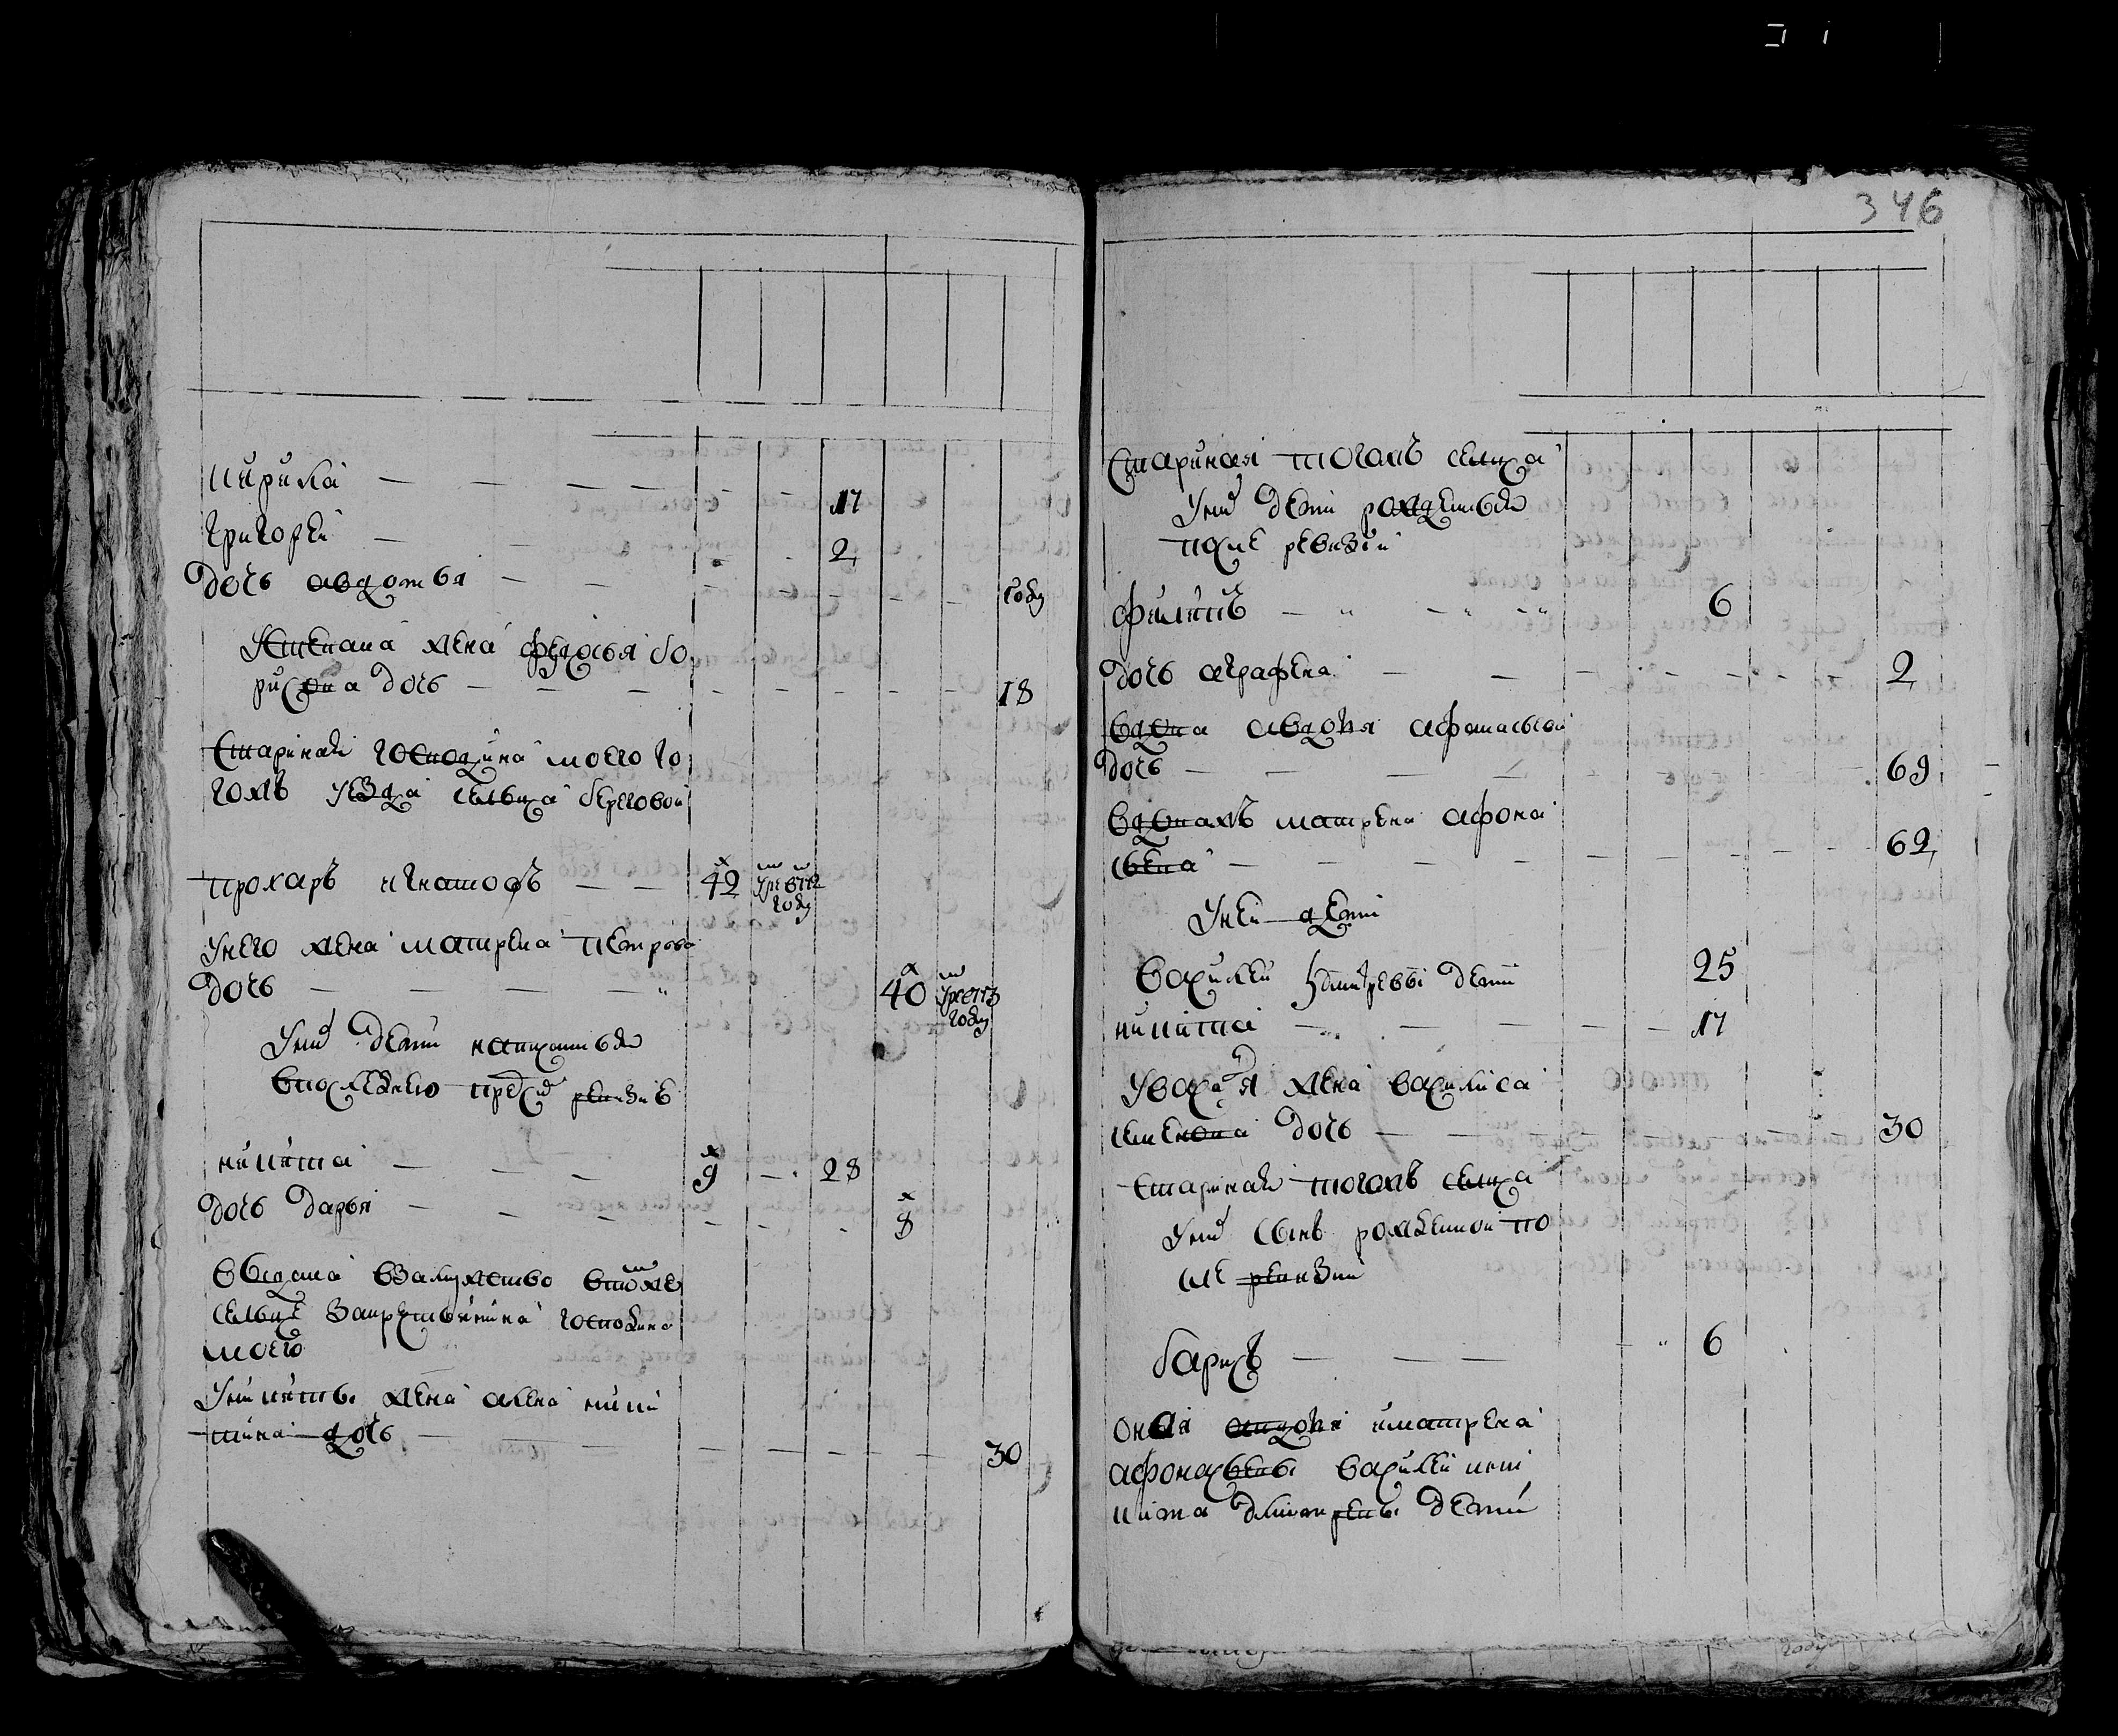 кирила — — — — 17
григорей — 2
дочь авдотья — — году
У степана жена федосья бо
рисова дочь — 18
Старинная господина моего то
гожъ уезда сельца береговой
прохаръ игнатовъ — — 42 умре 
году
Унего жена матрена петрова
дочь — — — 40 умре
году
Уних дети написанныя
впоследнею пред сим ревизию
никита — 9 — 28
дочь дарья — 8
выдана взамужство втомже
сельце за крестьянина господина
моего
Уникиты жена алена ники
тина дочь — 30
346
Старинная тогожъ сельца
Уних дети рожденныя
после ревизии
филипъ — 6
дочь аграфена — 2
вдова авдотья афонасьева
дочь — 69
вдоважъ матрена афона
сьева — 62
Уней дети
василей дмитревы дети 25
никита — 17
Увасилья жена василиса
семенова дочь — 30
Старинная тогожъ сельца
Уних сынъ рожденной по
сле ревизии
барисъ — 6
оная авдотья иматрена
афонасьевы василей ини
кита дмитревы дети